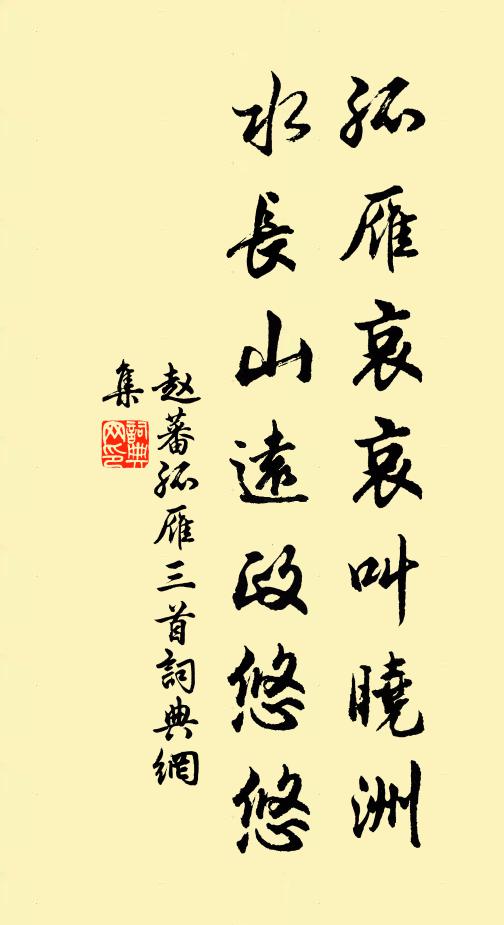 孤雁哀哀叫曉洲
水長山遠政悠悠
赵蕃孤雁三首詞典網
集
詞典
网印